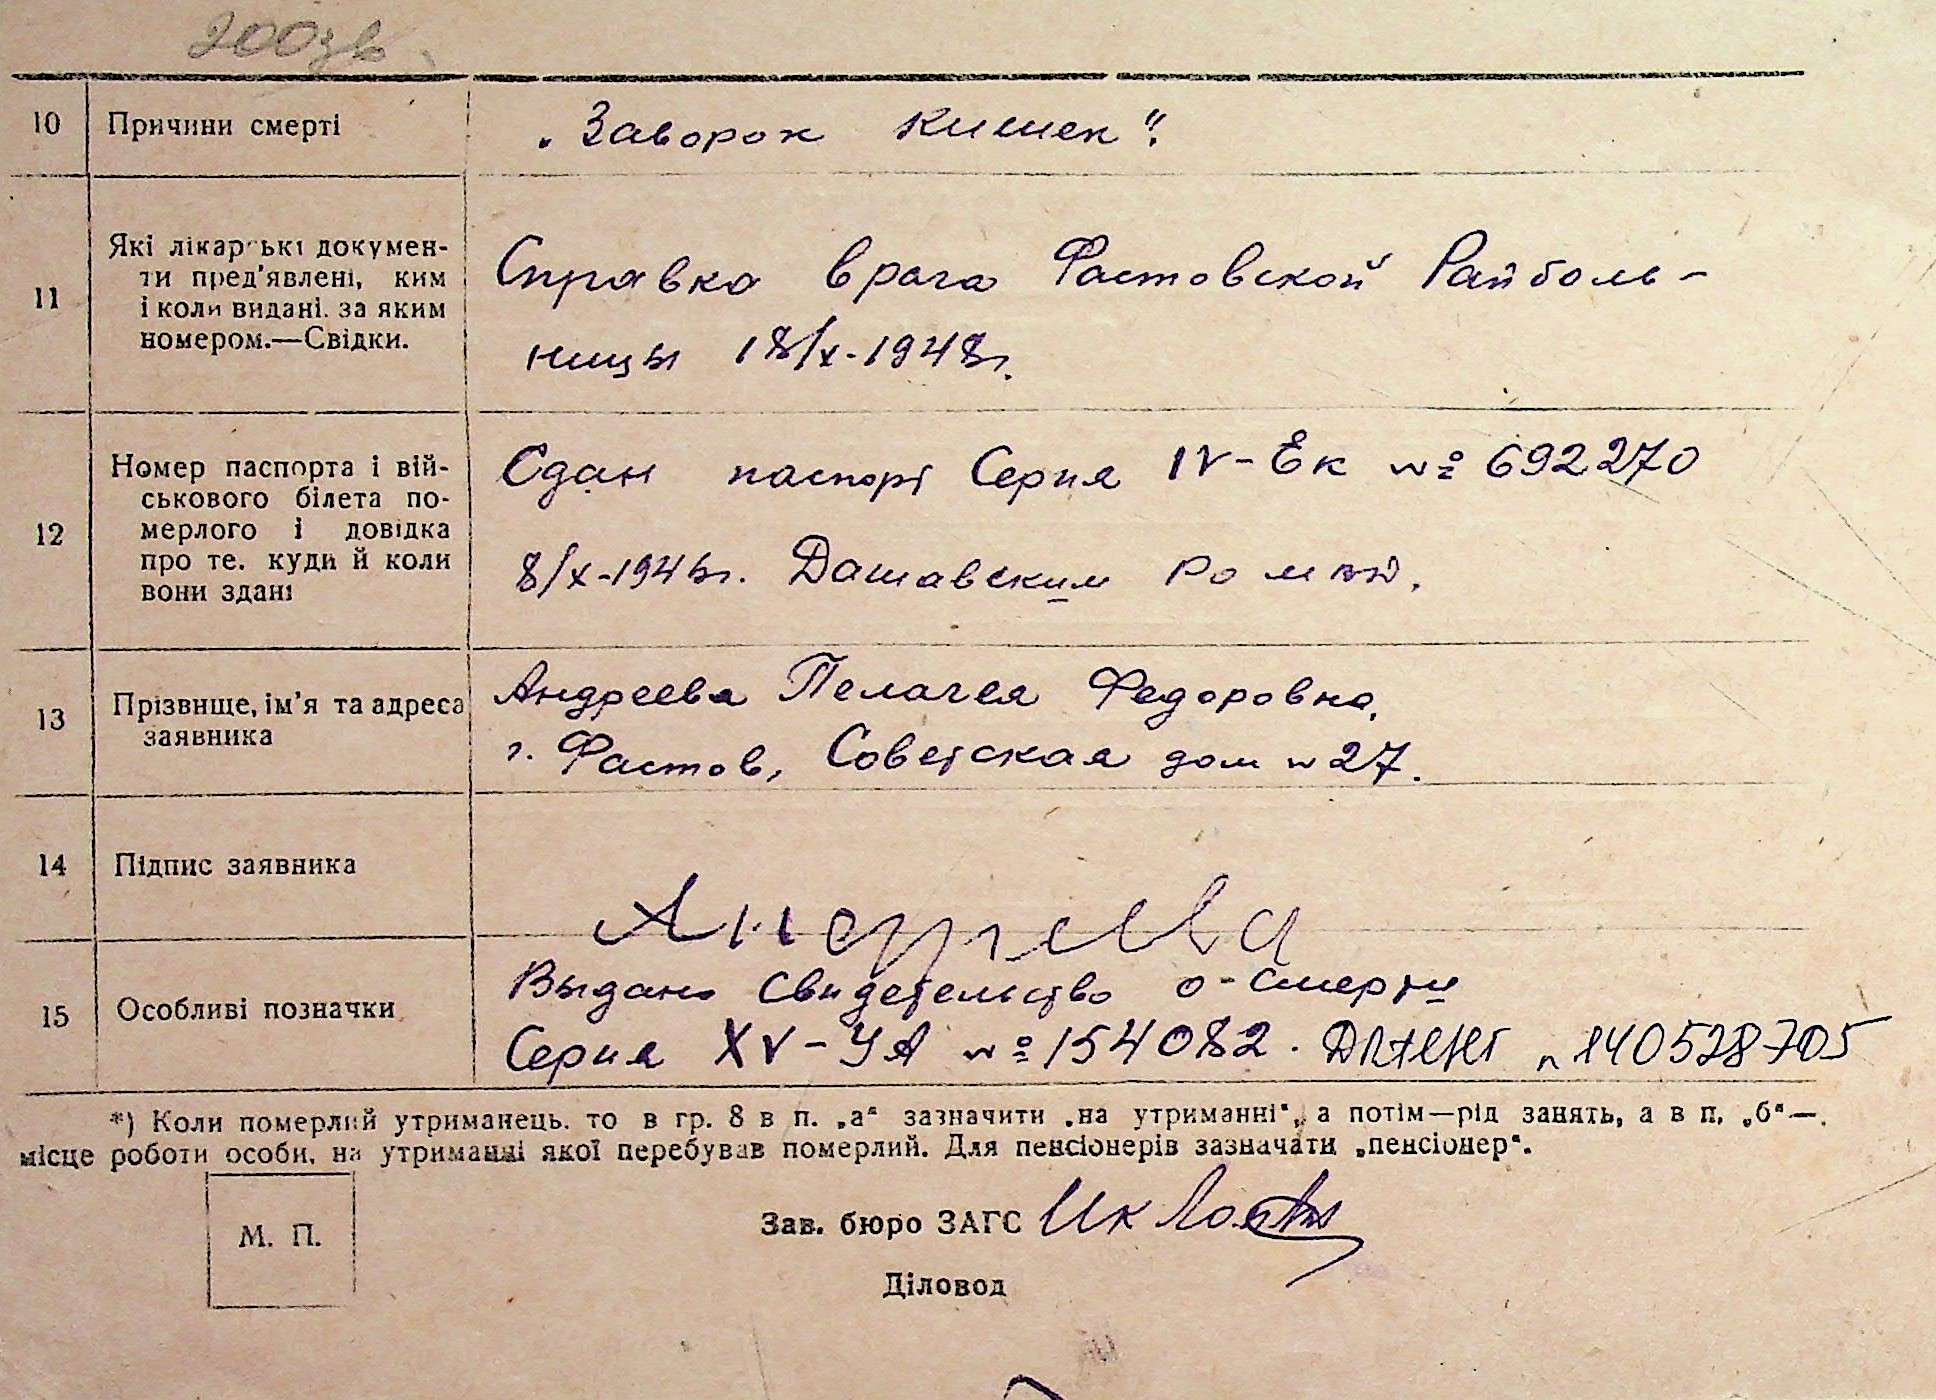 10 Причини смерті „Заворок кишек“.
11 Які лікарські докумен- Справка врача Фастовской Райболь-
ти пред'явлені, ким
і коли видані. за яким ницы 18/х-1948г.
номером.—Свідки.
12 Номер паспорта і вій- Сдан паспорт Серия IV-Ек № 692270
ського білета по-
мерлого і довідка
про те. куди й коли 8/х-194 г. Дашавским
вони здані
13 Прізвище, ім'я та адреса Андреева Пелагея Федоровна,
заявника г. Фастов, Советская дом № 27.
14 Підпис заявника Андреева
15 Особливі позначки Выдано Свидетельство о-смерти
Серия XV-УА № 154082. n 140528705
*) Коли померлий утриманець. то в гр. 8 в п. „а“ зазначити „на утриманні“, а потім—рід занять, а в п. „б“—
місце роботи особи, на утриманні якої перебував померлий. Для пенсіонерів зазначати „пенсіонер“.
М. П.
Зав. бюро ЗАГС
Діловод